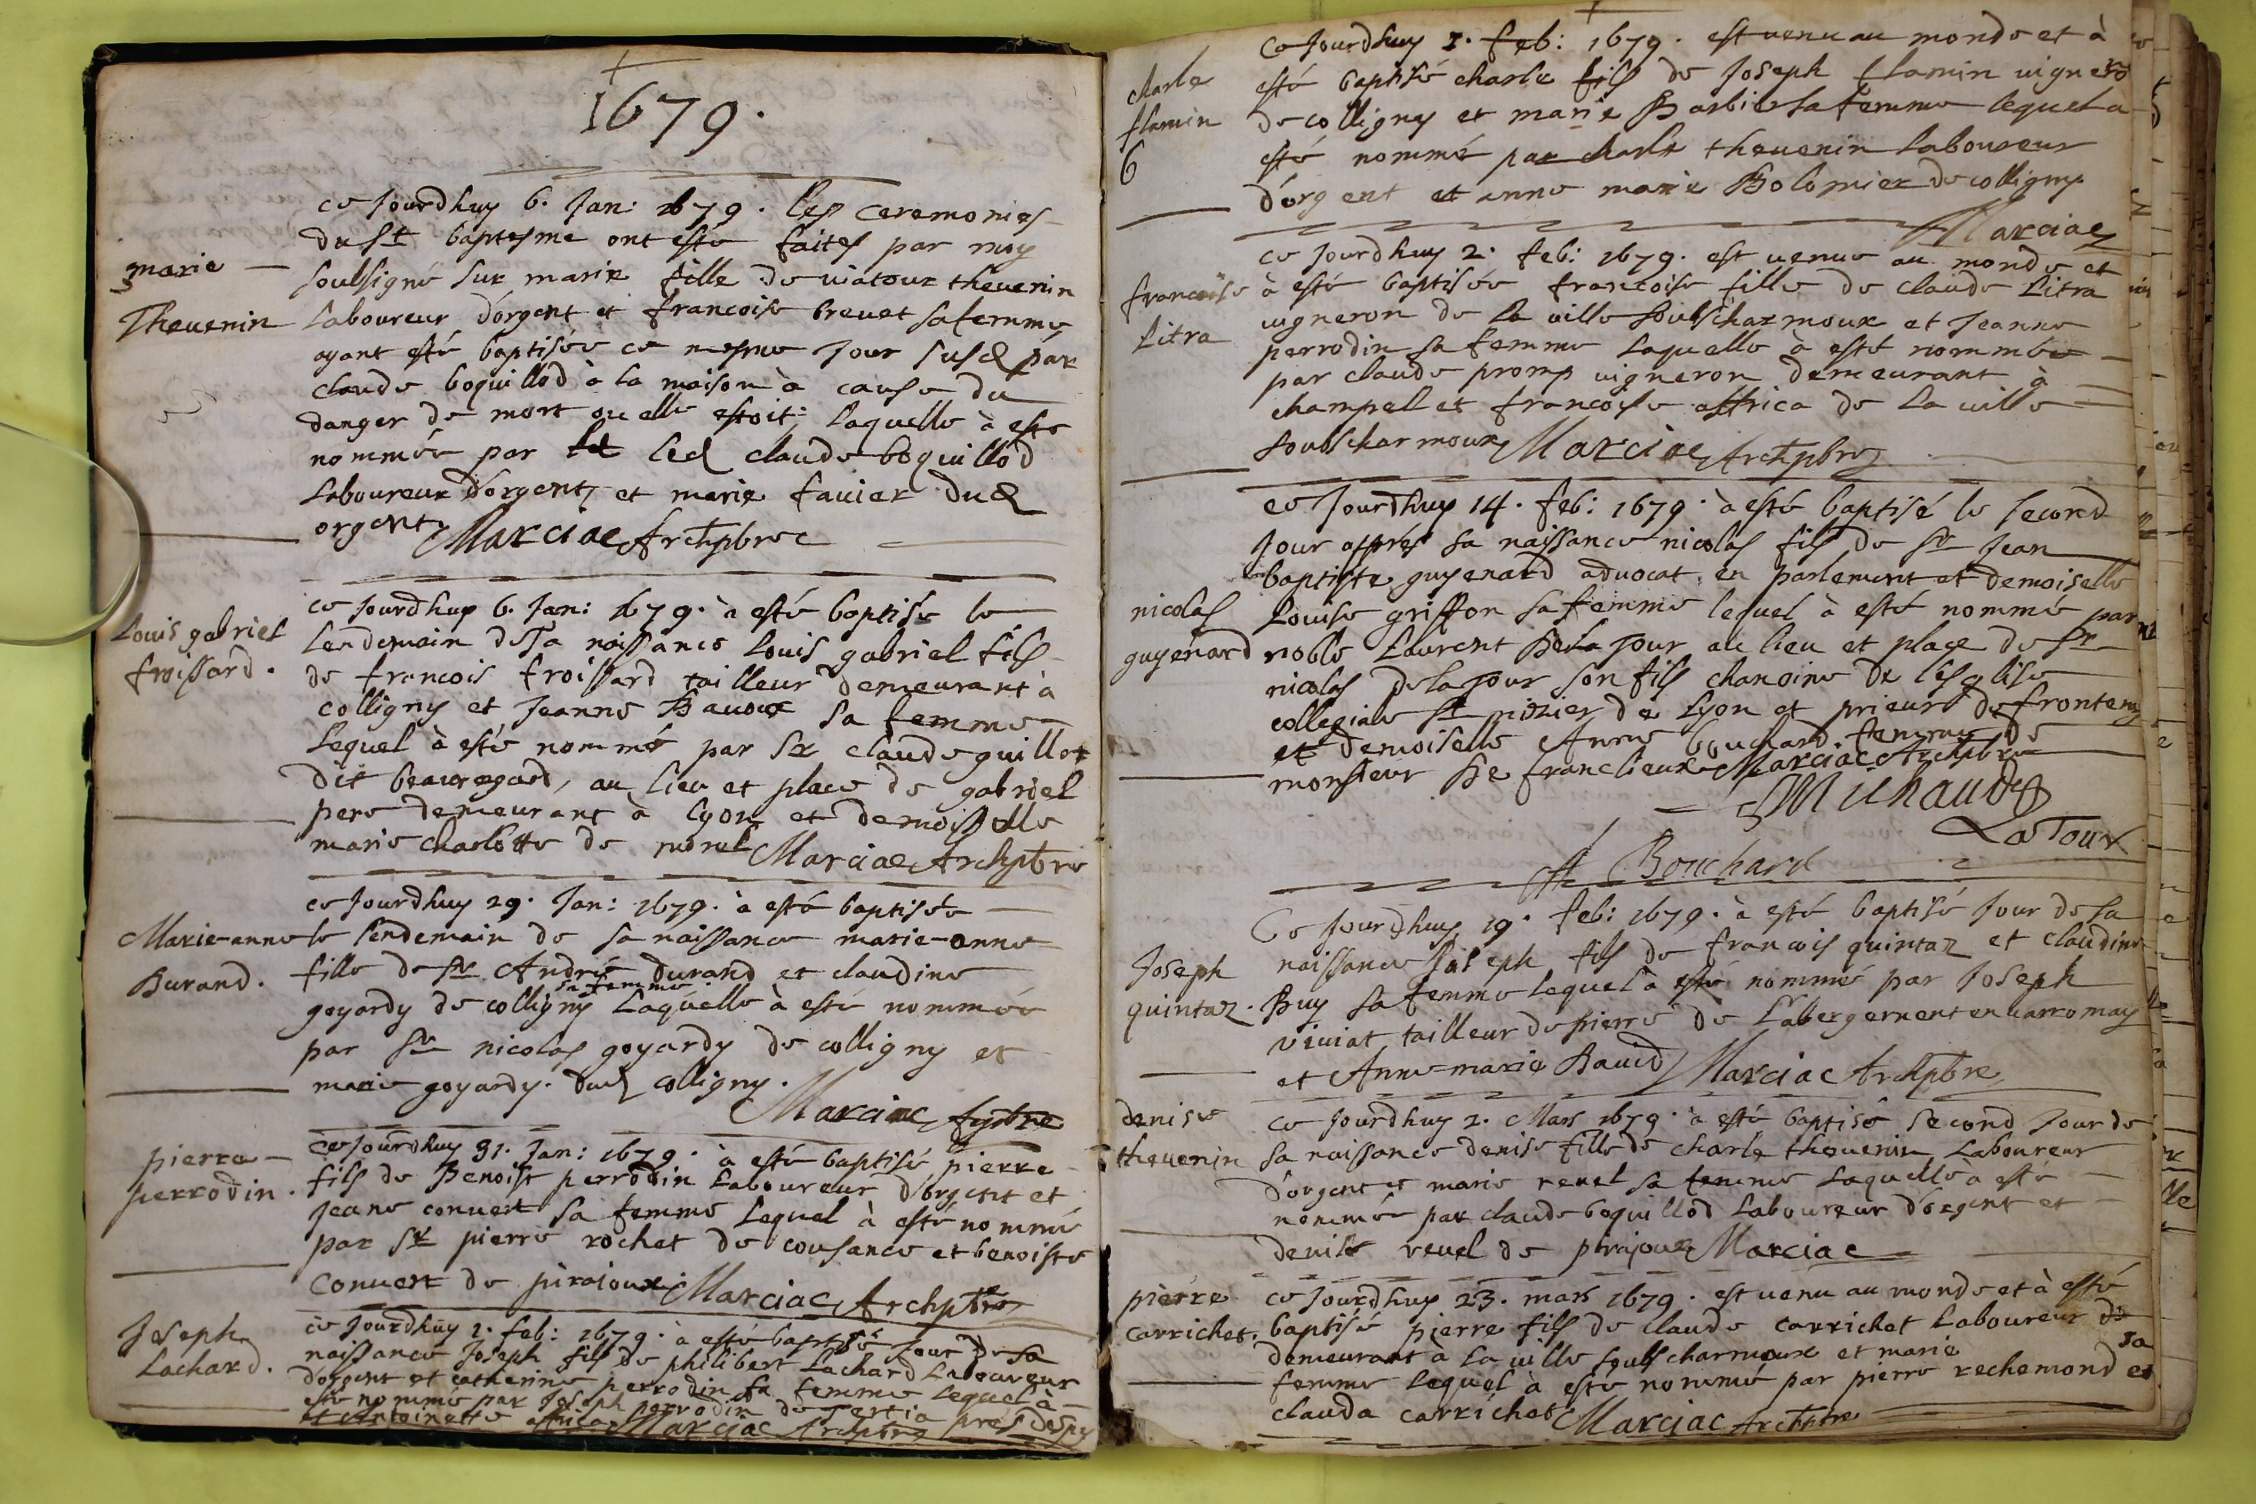 1679.
marie
Thevenin
ce Jourdhuy 6. Jan: 1679. les ceremonies
du St baptesme ont esté faites par moy
soubsigné sur marie fille de viatour thevenin
Laboureur d'orgent et francoise brevet sa femme
ayant esté baptisée ce mesme jour susd par
claude boquillod à la maison à cause du
danger de mort ou elle estoit; laquelle à esté
nommée par led claude boquillod
Laboureur d'orgent, et marie favier dud
orgent Marciac Archpbre
Louis gabriel
froissard.
ce Jourdhuy 6. Jan: 1679. à esté baptisé le
lendemain de sa naissance Louis gabriel fils
de francois froissard tailleur demeurant à
colligny et Jeanne Bavoux sa femme
Lequel à esté nommé par Sr claude guillot
dit beauregard, au lieu et place de gabriel
pere demeurant à lyon et demoiselle
marie charlotte de morel Marciac Archpbre
Marie-anne
Durand.
ce Jourdhuy 29. Jan: 1679. à esté baptisée
le lendemain de sa naissance marie-anne
fille de Sr André durand et claudine
goyardy sa femme de colligny Laquelle à esté nommée
par Sr nicolas goyardy de colligny et
marie goyardy. dud colligny.
Marciac
pierre
perrodin.
ce Jourdhuy 31. Jan: 1679. à esté baptisé pierre
fils de Benoist perrodin Laboureur d'orgent et
Jeane convert sa femme Lequel à esté nommé
par Sr pierre rochet de cousance et benoiste
convert de pirajoux. Marciac Archpbre
Joseph
Lachard.
ce Jourdhuy 1. feb: 1679. à esté baptisé jour de sa
naissance Joseph fils de philibert Lachard Laboureur
d'orgent et catherine perrodin sa femme lequel à
esté nommé par Joseph perrodin de pres
et Antoinette Marciac Archpbre
charle
flamin
6
ce Jourdhuy 1. feb: 1679. est venu au monde et à
esté baptisé charle fils de Joseph flamin vigneron
de colligny et marie Barbier sa femme lequel a
esté nommé par charle thevenin laboureur
d'orgent et anne marie Bolomier de colligny
Marciac
francoise
Litra
ce Jourdhuy 2. feb: 1679. est venue au monde et
à esté baptisée francoise fille de claude Litra
vigneron de la ville soubscharmoux et Jeanne
perrodin sa femme laquelle à esté nommée
par claude promp vigneron demeurant à
champel et francoise affrica de la ville
soubscharmoux Marciac Archpbre
nicolas
guyenard
ce Jourdhuy 14. feb: 1679. à esté baptisé le second
Jour appres sa naissance nicolas fils de Sr Jean
baptiste guyenard advocat en parlement et demoiselle
Louise griffon sa femme lequel à esté nommé par
noble Laurent De La Tour au lieu et place de Sr
nicolas de la Tour son fils chanoine de l'esglise
collegiale St nizier de Lyon et prieur de frontenay
et demoiselle Anne bouchard femme de
monsieur De franclieux Marciac Archpbre
Michaud
LaTour
A Bouchard
Joseph
quintaz.
Ce Jourdhuy 19. feb: 1679. à esté baptisé Jour de sa
naissance Joseph fils de francois quintaz et claudine
Buy sa femme lequel à esté nommé par Joseph
viviat tailleur de pierre de L'abergement en varromay
et Anne-marie David Marciac Archpbre
denise
thevenin
ce Jourdhuy 2. Mars 1679. à esté baptisé second Jour de
sa naissance denise fille de charle thevenin Laboureur
d'orgent et marie revel sa femme Laquelle à esté
nommée par claude boquillod Laboureur d'orgent et
denise revel de pirajoux Marciac
pierre
carrichet.
ce Jourdhuy 23. mars 1679. est venu au monde et à esté
baptisé pierre fils de claude carrichet Laboureur
demeurant à la ville soubscharmoux et marie sa
femme Lequel à esté nommé par pierre rechemond et
clauda carrichet Marciac Archpbre